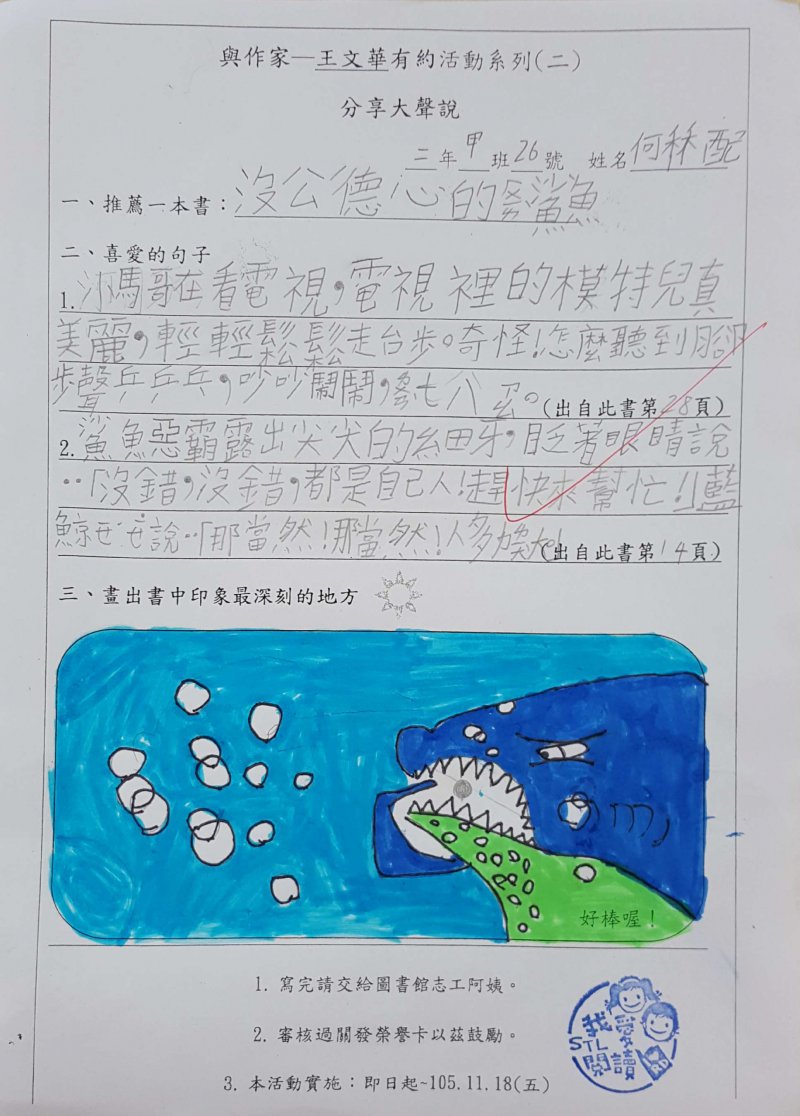 與作家—王文華有約活動系列(二)
分享大聲說
三年甲班26號 姓名何秝配
一、推薦一本書：沒公德心的鯊魚
二、喜愛的句子
1.河馬哥在看電視，電視裡的模特兒真
美麗，輕輕鬆鬆走台步。奇怪！怎麼聽到腳
步聲乒乒乓，吵吵鬧鬧，亂七八糟。(出自此書第28頁)
2.鯊魚惡霸露出尖尖的細牙，眨著眼睛說
：「沒錯，沒錯，都是自己人！趕快來幫忙！」藍
鯨ㄝㄝ說：「那當然！那當然！人多(出自此書第14頁)
三、畫出書中印象最深刻的地方
好棒喔！
1. 寫完請交給圖書館志工阿姨。
2. 審核過關發榮譽卡以茲鼓勵。
3. 本活動實施：即日起~105.11.18(五)
我愛
STL
閱讀